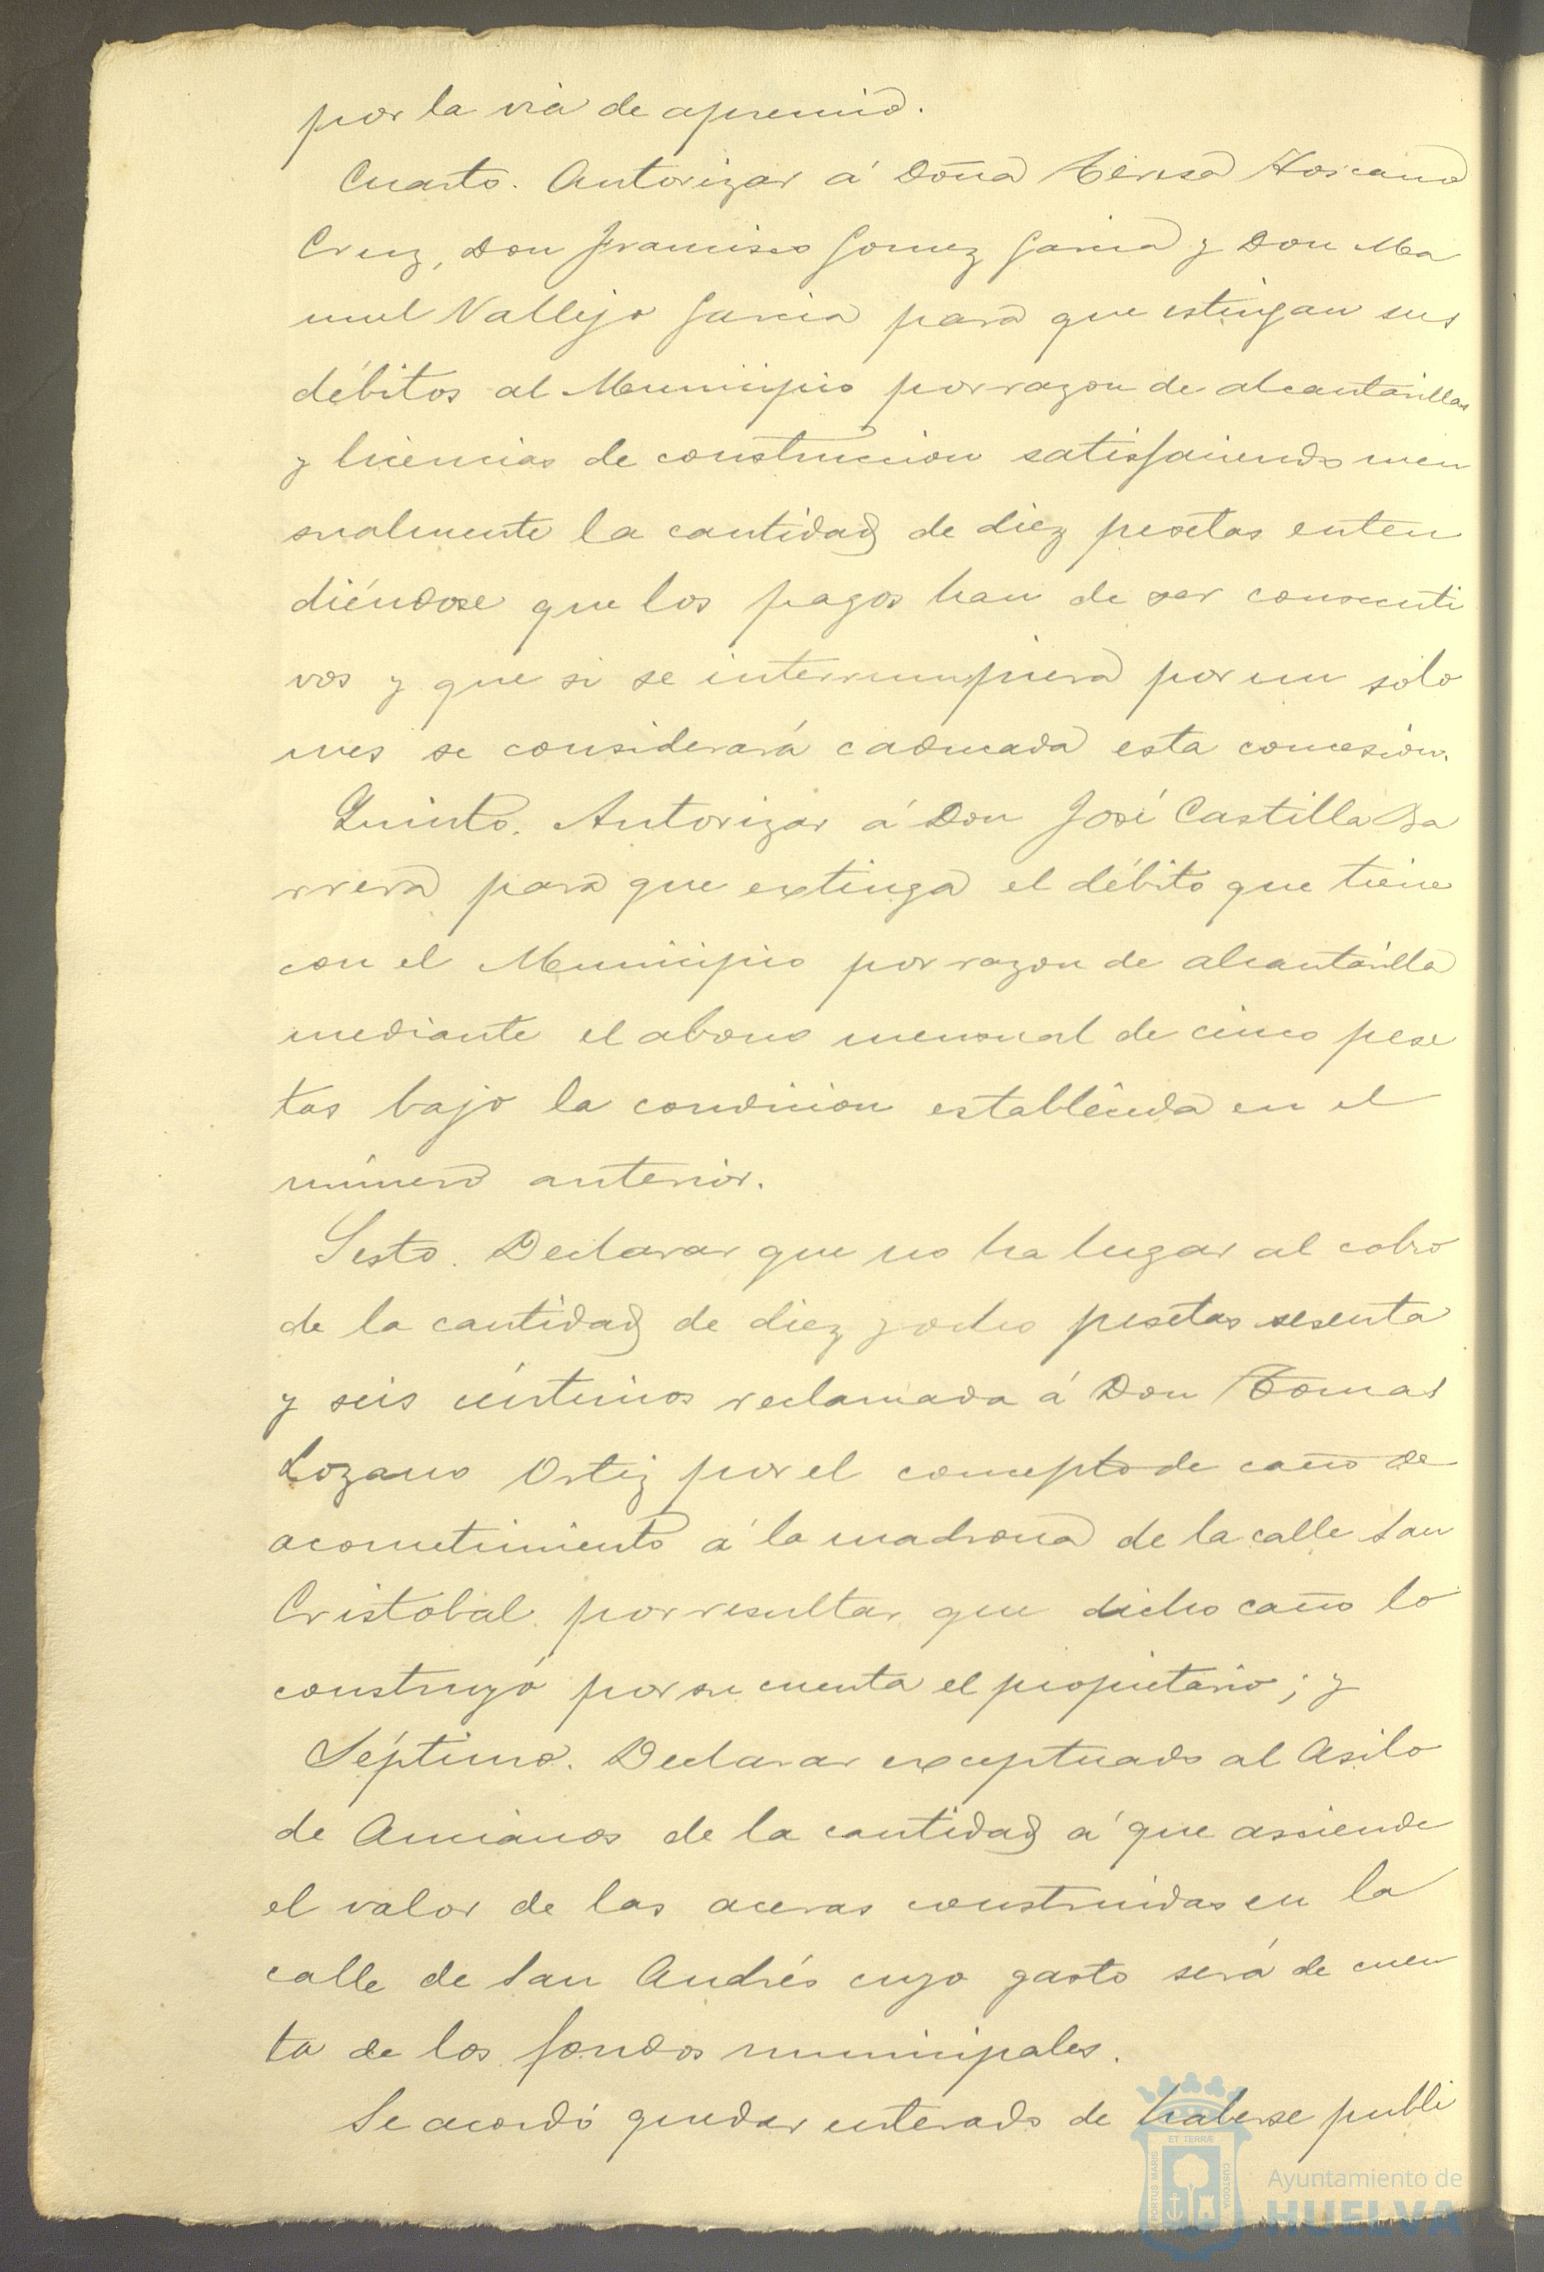 por la via de apremio.
Cuarto. Autorizar á Doña Teresa Toscano
Cruz, Don Francisco Gomez Garcia y Don Ma
nuel Vallejo Garcia para que estingan sus
débitos al Municipio por razon de alcantarillas
y licencias de construccion satisfaciendo men
sualmente la cantidad de diez pesetas enten
diéndose que los pagos han de ser consecuti
vos y que si se interrumpiera por un solo
mes se considerará caducada esta concesión.
Quinto. Autorizar á Don José Castilla Ba
rrera para que extinga el débito que tiene
con el Municipio por razon de alcantarilla
mediante el abono mensual de cinco pese
tas bajo la condicion establecida en el
número anterior.
Sesto. Declarar que no ha lugar al cobro
de la cantidad de diez y ocho pesetas sesenta
y seis céntimos reclamada á Don Tomas
Lozano Ortiz por el concepto de caño de
acometimiento á la madrona de la calle San
Cristobal por resultar que dicho caño lo
construyó por su cuenta el propietario; y
Séptimo. Declarar exceptuado al Asilo
de Ancianos de la cantidad á que asciende
el valor de las aceras construidas en la
calle de San Andrés cuyo gasto será de cuen
ta de los fondos municipales.
Se acordó quedar enterado de haberse publi
PORTUS MARIS ET TERRÆ CUSTODIA
Ayuntamiento de
HUELVA